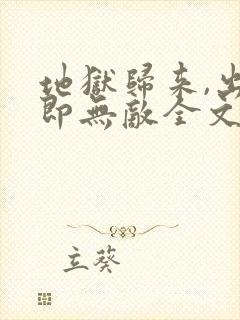 地獄歸来,出
即無敵全文
立葵